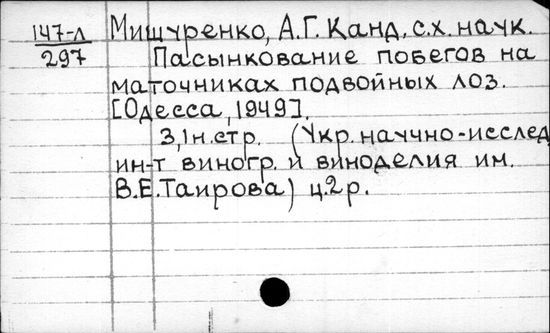 147-л
297
Мищуренко, А.Г. Канд. с.х. наук.
Пасынкование побегов на
маточниках подвойных лоз.
[Одесса, 1949].
3,1н.стр. (Укр. научно-исслед.
ин-т виногр. и виноделия им.
В.Е.Таирова) ц.2р.